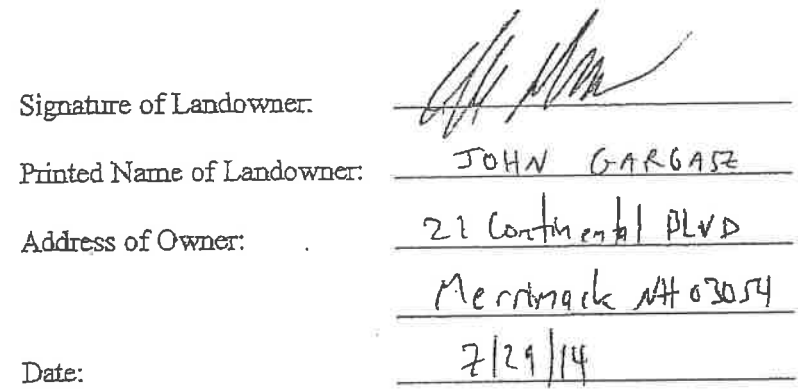 Signature of Landowner:
Printed Name of Landowner: JOHN GARGASZ
Address of Owner: 21 Continental BLVD
Merrimack NH 03054
Date: 7/29/14